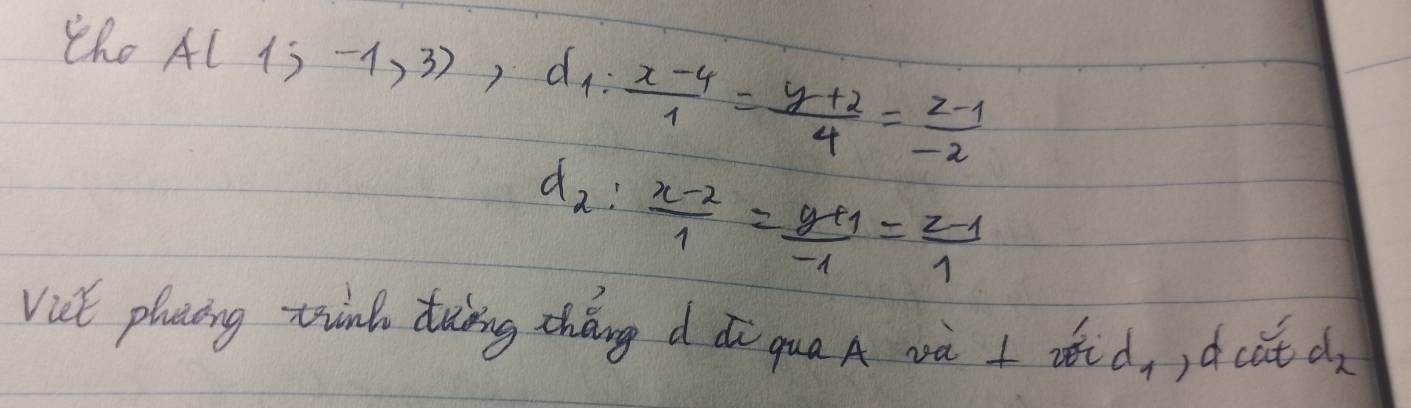 Cho A( 1; -1, 3) , d₁: (x-4)/1 = (y+2)/4 = (z-1)/-2
d₂ : (x-2)/1 = (y+1)/-1 = (z-1)/1
Viết phương trình đường thẳng d đi qua A và ⊥ với d₁ , d cắt d₂